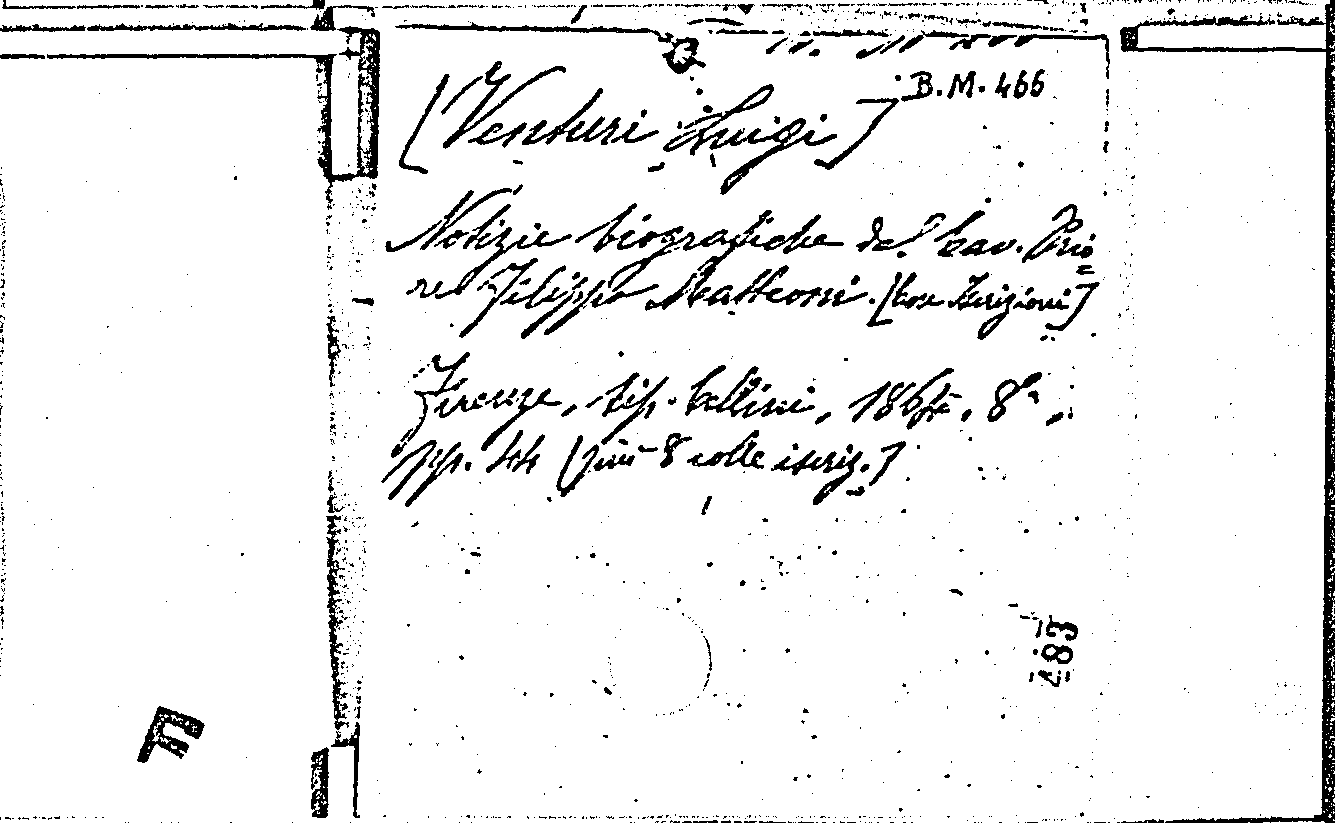 B.M. 466
[Venturi Luigi]
Notizie biografiche del Cav. Prio=
re Filippo Matteoni. [con Iscrizioni]
Firenze, tip. Cellini, 186 , 8°,
pp. 44 (più 8 colle iscriz.]
483
F